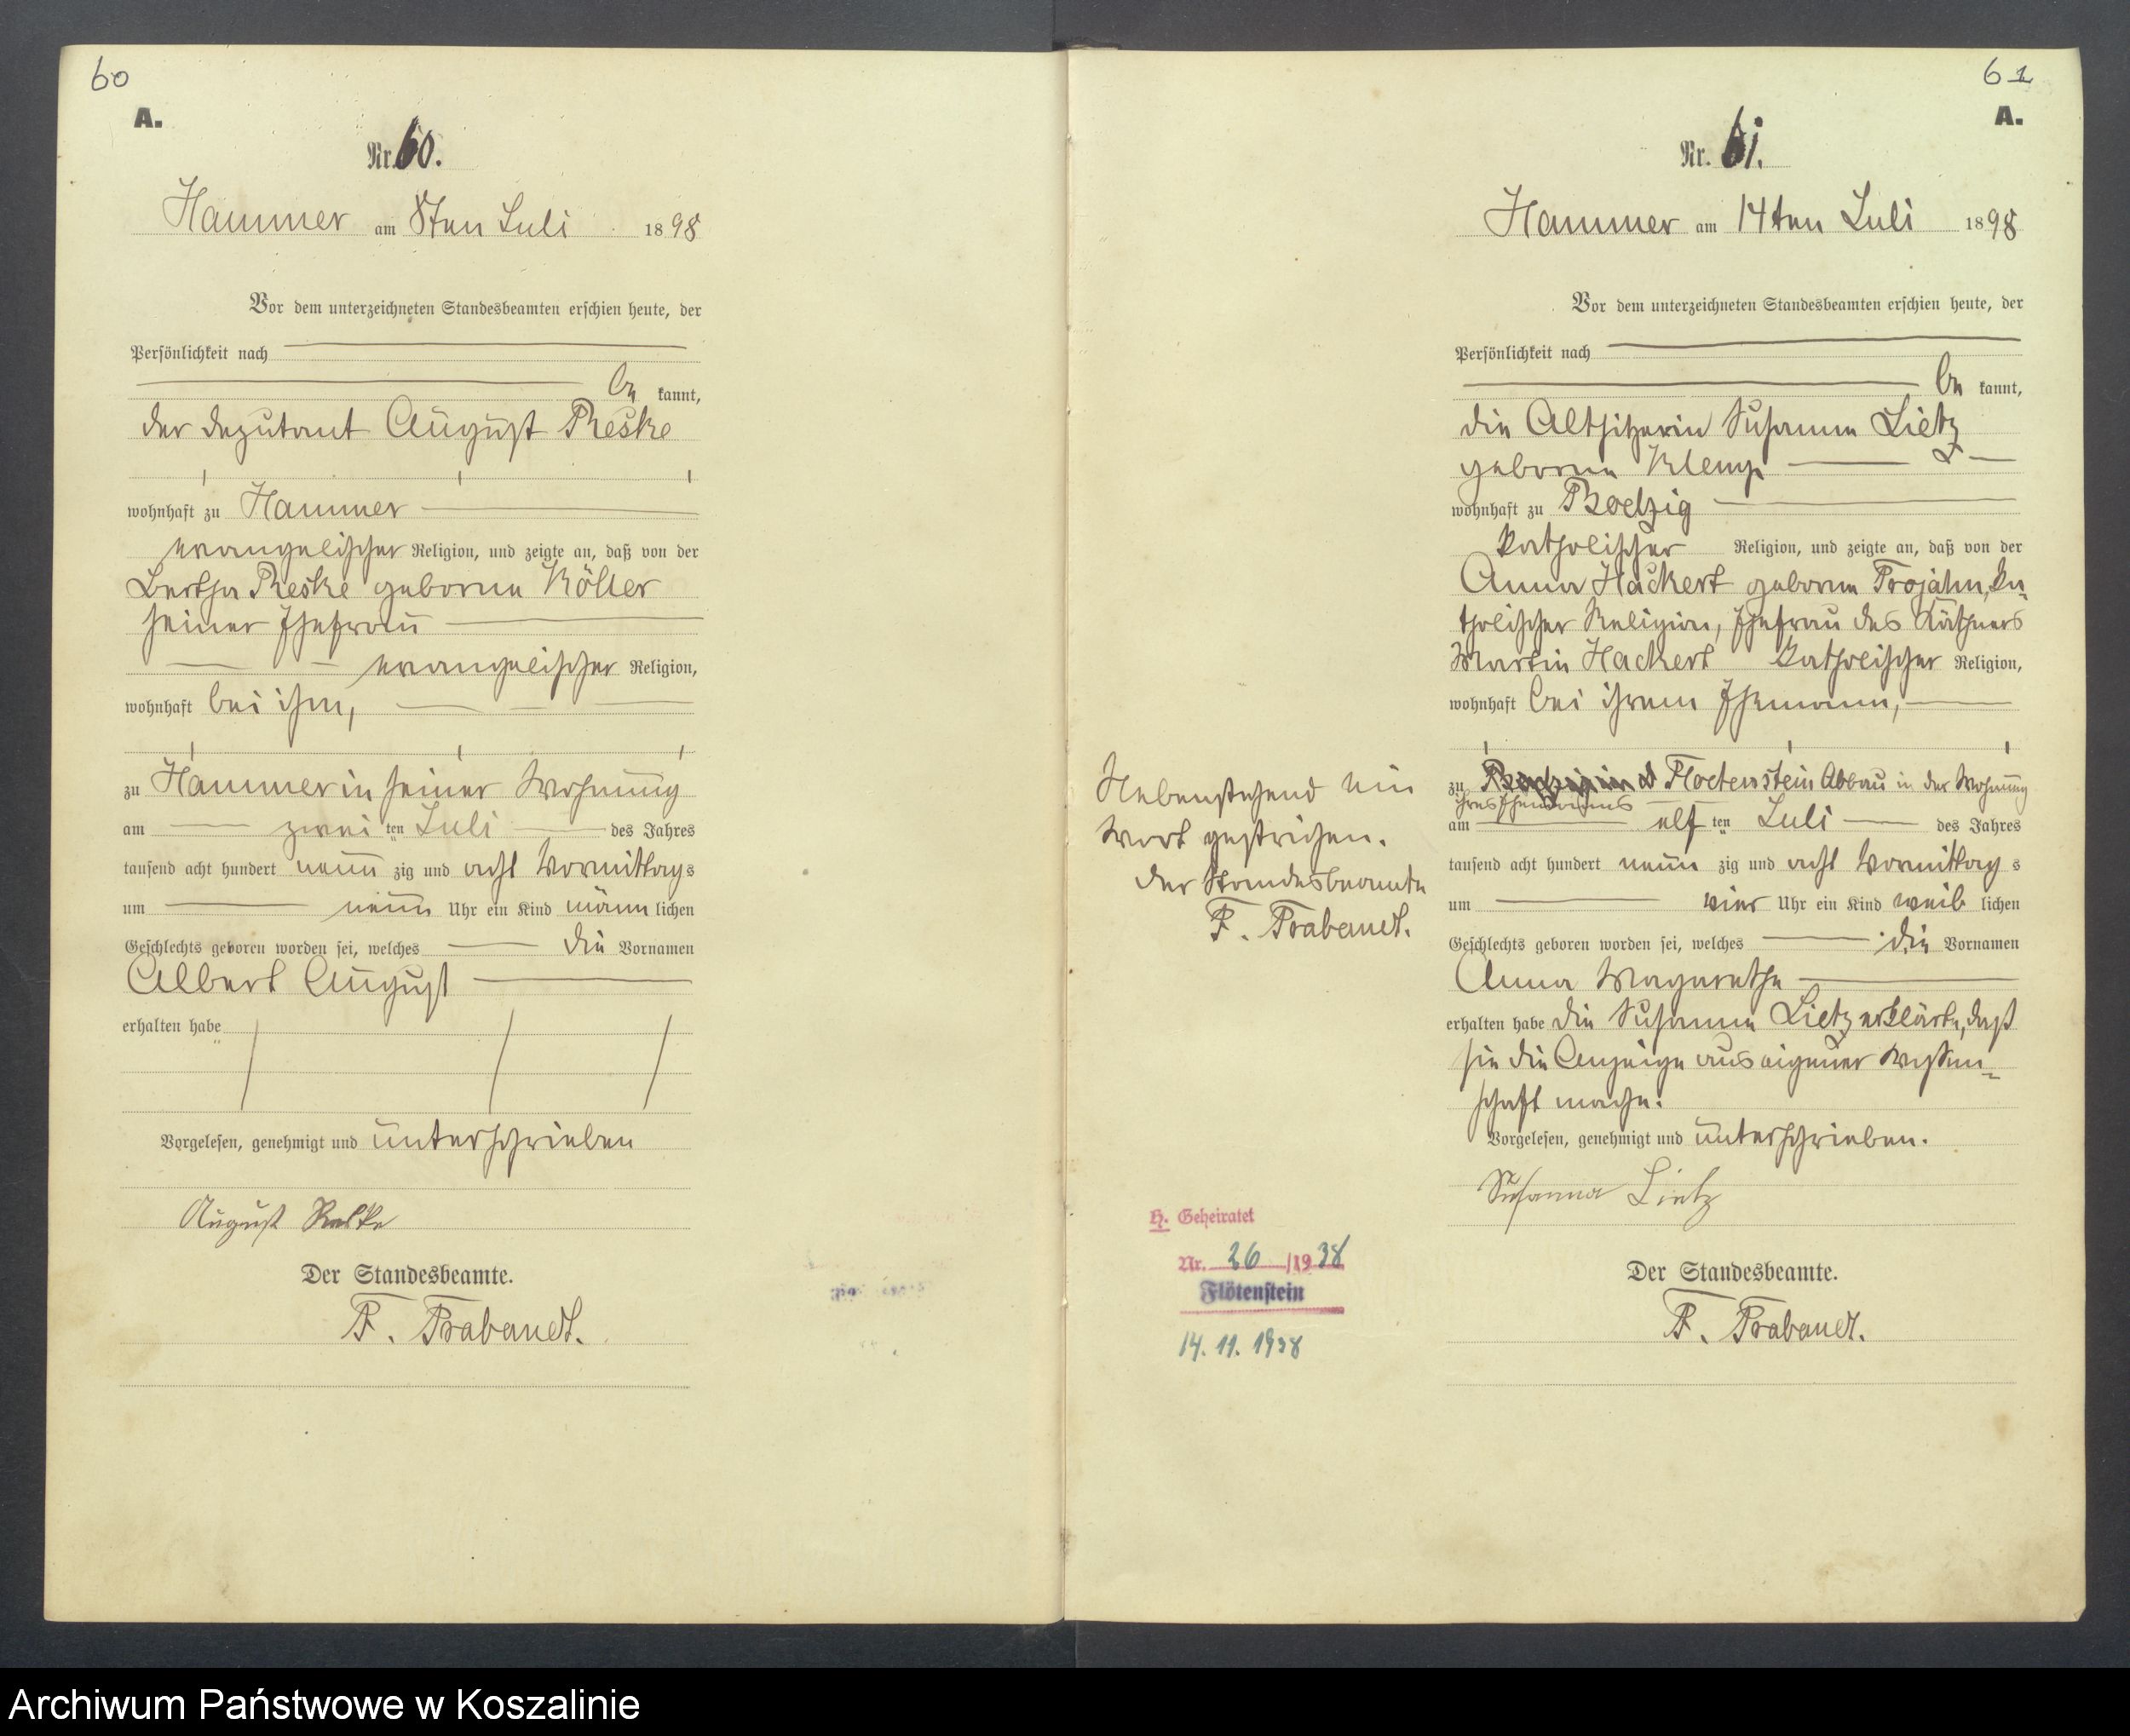 60
A.
Nr. 60.
Hammer am 8ten Juli 1898
Vor dem unterzeichneten Standesbeamten erschien heute, der
Persönlichkeit nach
be kannt,
der Deputant August Reske
wohnhaft zu Hammer
evangelischer Religion, und zeigte an, daß von der
Bertha Reske geborne Köller
seiner Ehefrau
evangelischer Religion,
wohnhaft bei ihm,
zu Hammer in seiner Wohnung
am zwei ten Juli des Jahres
tausend acht hundert neun zig und acht Vormittags
um neun Uhr ein Kind männ lichen
Geschlechts geboren worden sei, welches die Vornamen
Albert August
erhalten habe
Vorgelesen, genehmigt und unterschrieben
August Reske
Der Standesbeamte.
F. Prabandt.
61
A.
Nr. 61.
Hammer am 14ten Juli 1898
Vor dem unterzeichneten Standesbeamten erschien heute, der
Persönlichkeit nach
be kannt,
die Altsitzerin Susanna Lietz
geborne Klemp
wohnhaft zu Roetzig
katholischer Religion, und zeigte an, daß von der
Anna Hackert geborne Trojahn, ka-
tholischer Religion, Ehefrau des Käthners
Martin Hackert katholischer Religion,
wohnhaft bei ihrem Ehemann,
zu Floetenstein Abbau in der Wohnung
ihres Ehemannes
am elf ten Juli des Jahres
tausend acht hundert neun zig und acht Vormittag s
um vier Uhr ein Kind weib lichen
Geschlechts geboren worden sei, welches die Vornamen
Anna Magarethe
erhalten habe die Susanna Lietz erklärte, daß
sie die Anzeige aus eigener Wissen-
schaft mache.
Vorgelesen, genehmigt und unterschrieben.
Susanna Lietz
Der Standesbeamte.
F. Prabandt.
Nebenstehend ein
Wort gestrichen.
Der Standesbeamte
F. Prabandt.
H. Geheiratet
Nr. 26 /1938
Flötenstein
14. 11. 1938
Archiwum Państwowe w Koszalinie